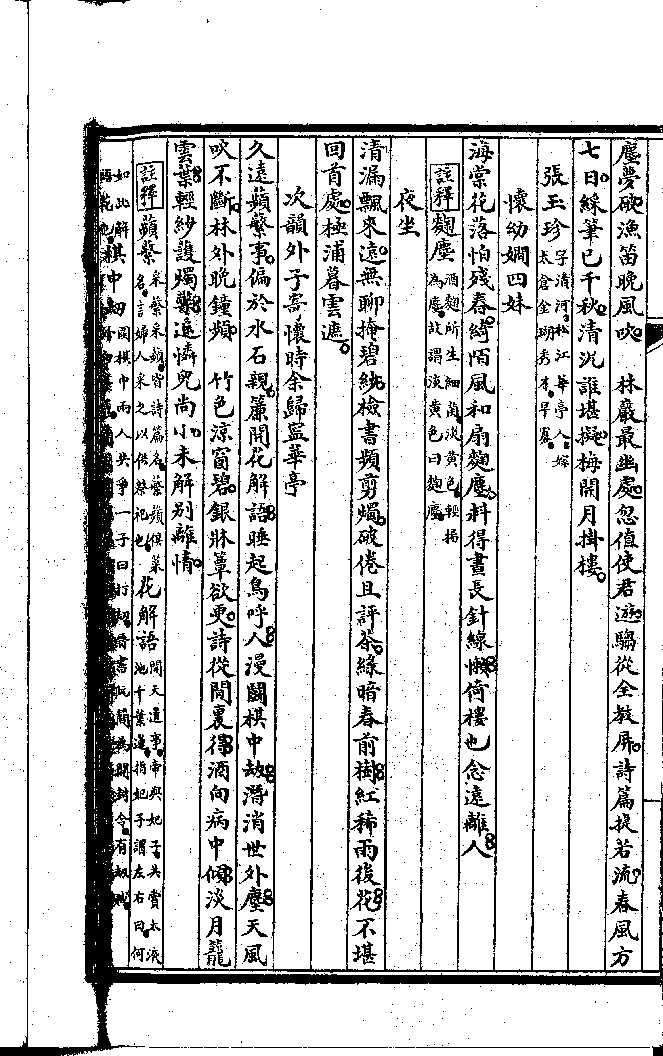 塵夢破漁笛晚風吹　林巖最幽處忽值使君遊騶從全教屏詩篇捉若流春風方
七日綵筆已千秋清況誰堪擬梅開月掛樓
張玉珍字清河松江華亭人嫁太倉金瑚秀才早寡
懷幼嫻四妹
海棠花落怕殘春綺陌風和扇麴塵料得晝長針線懶倚樓也念遠離人
註釋 麴塵酒麴所生細菌淡黃色輕揚為塵故謂淡黃色曰麴塵
夜坐
清漏飄來遠無聊掩碧紗檢書頻剪燭破倦且評茶綠暗春前樹紅稀雨後花不堪
回首處極浦暮雲遮
次韻外子寄懷時余歸寧華亭
久遠蘋蘩事偏於水石親簾開花解語睡起鳥呼人漫鬬棋中劫潛消世外塵天風
吹不斷林外晚鐘頻　竹色涼窗碧銀牀簟欲更詩從閒裏得酒向病中傾淡月籠
雲葉輕紗護燭檠遙憐兒尚小未解別離情
註釋 蘋蘩采蘩采蘋皆詩篇名蘩蘋俱菜名言婦人采之以供祭祀也 花解語開天遺事帝與妃子共賞太液池千葉蓮指妃子謂左右曰何
如此解語花也 棋中劫圍棋中兩人共爭一子曰打劫晉書阮簡為開封令有劫賊